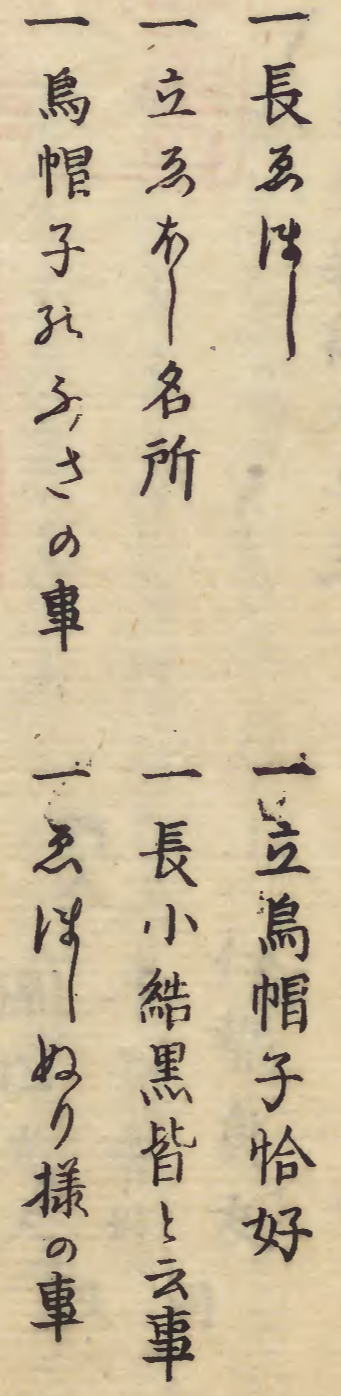 一 長ゑほし 一 立烏帽子恰好
一 立ゑほし名所 一 長小結黒皆と云事
一 烏帽子のふさの事 一 ゑほしぬり様の事